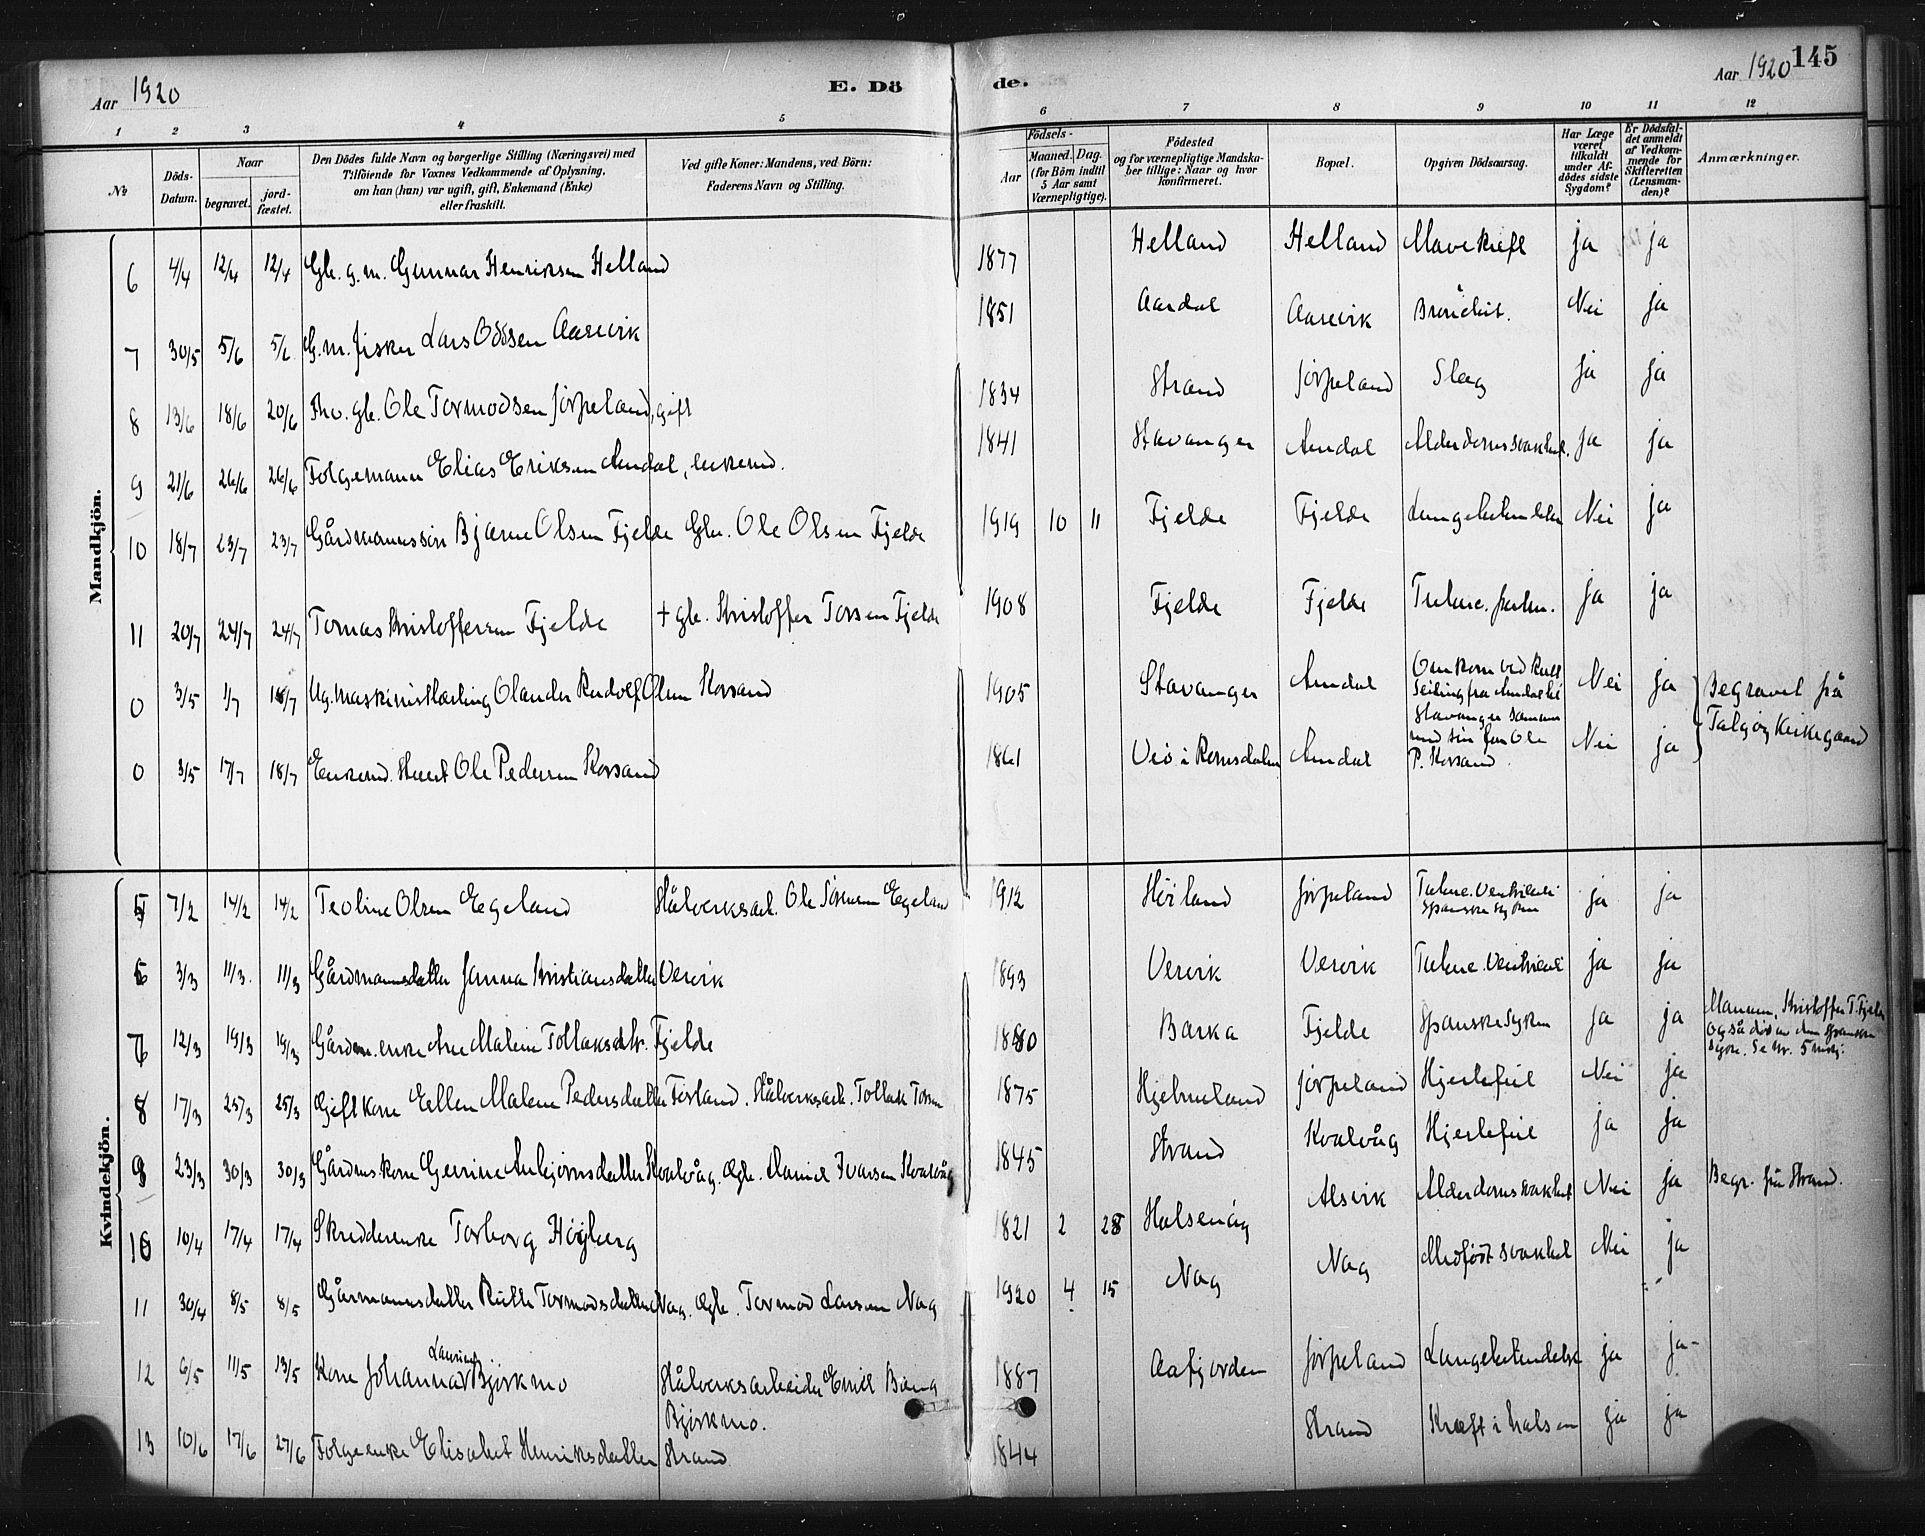 Aar 1920 E. Dö de. Aar 1920 145
1 2 3 4 5 6 7 8 9 10 11 12
№ Döds-Datum. Naar begravet. jordfæstet. Den Dödes fulde Navn og borgerlige Stilling (Næringsvei) med Tilföiende for Voxnes Vedkommende af Oplysning, om han (hun) var ugift, gift, Enkemand (Enke) eller fraskilt. Ved gifte Koner: Mandens, ved Börn: Faderens Navn og Stilling. Födsels- Aar Maaned. Dag. (for Börn indtil 5 Aar samt Værnepligtige). Födested og for værnepligtige Mandskaber tillige: Naar og hvor konfirmeret. Bopæl. Opgiven Dödsaarsag. Har Læge været tilkaldt under Afdödes sidste Sygdom? Er Dödsfaldet anmeldt af Vedkommende for Skifteretten (Lensmanden)? Anmærkninger.
Mandkjön.
6 4/4 12/4 12/4 Gbr. g. m. Gunnar Henriksen Helland 1877 Helland Helland Mavekreft ja ja
7 30/5 5/6 5/6 G. m. fisker Lars Oddsen Aarevik 1851 Aardal Aarevik Nei ja
8 13/6 18/6 20/6 Fho. gbr. Ole Tormodsen Jörpeland, gift 1834 Strand Jörpeland Slag ja ja
9 21/6 26/6 26/6 Folgemann Elias Eriksen Amdal, enkemd. 1841 Stavanger Amdal Alderdomssvakhet. ja ja
10 18/7 23/7 23/7 Gårdmannssön Bjarne Olsen Fjelde Gbr. Ole Olsen Fjelde 1919 10 11 Fjelde Fjelde Lungebetendelse Nei ja
11 20/7 24/7 24/7 Tomas Kristoffersen Fjelde + gbr. Kristoffer Torsen Fjelde 1908 Fjelde Fjelde ja ja
0 3/5 1/7 18/7 Ug. Maskinistlærling Olander Rudolf Olsen Korsand 1905 Stavanger Amdal Omkom ved kullseiling fra Amdal til Stavanger sammen med sin far Ole P. Korsand. Nei ja Begravet på Talgöy Kirkegaard
0 3/5 17/7 18/7 Enkemd. Ole Pedersen Korsand 1861 Veö i Romsdalen Amdal Nei ja
Kvindekjön.
5 7/2 14/2 14/2 Teoline Olsen Egeland Stålverksarb. Ole Sörensen Egeland 1912 Höiland Jörpeland Spanske syken ja ja
6 3/3 11/3. 11/3 Gårdmannsdatter Janna Kristiansdatter Vervik 1893 Vervik Vervik ja ja
7 12/3 19/3 19/3 Gårdm. enke Ane Malene Tollaksdtr. Fjelde 1880 Barka Fjelde Spanske syken ja ja Mannen, Kristoffer T. Fjelde også död av den spanske syke. Se nr. 5
8 17/3 25/3 25/3 Gift kone Ellen Malene Pedersdatter Försland. Stålverksarb. Tollak Torsen 1875 Hjelmeland Jörpeland Hjertefeil Nei ja
9 23/3 30/3 30/3 Gårdmskone Gurine Asbjörnsdatter Kvalvåg. Gbr. Daniel Ivarsen Kvalvåg 1845 Strand Kvalvåg Hjertefeil ja ja
10 10/4 17/4 17/4 Skredderenke Torborg Höiberg 1821 2 28 Halsenöy Alsvik Alderdomssvakhet Nei ja Begr. på Strand.
11 30/4 8/5 8/5 Gårmannsdatter Ruth Tormodsdatter Nag. Gbr. Tormod Larsen Nag 1920 4 15 Nag Nag Medfödt svakhet Nei ja
12 6/5 11/5 13/5 Kone Johanna Laurine Björkmo Stålverksarbeider Emil Bang Björkmo. 1887 Aafjorden Jörpeland Lungebetendelse ja ja
13 10/6 17/6 27/6 Folgeenke Elisabet Henriksdatter Strand 1844 Strand Kræft i halsen ja ja